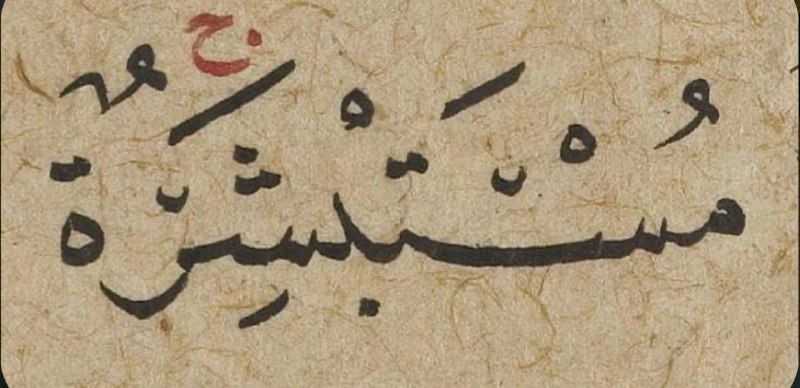 مُسْتَبْشِرَةٌ ج